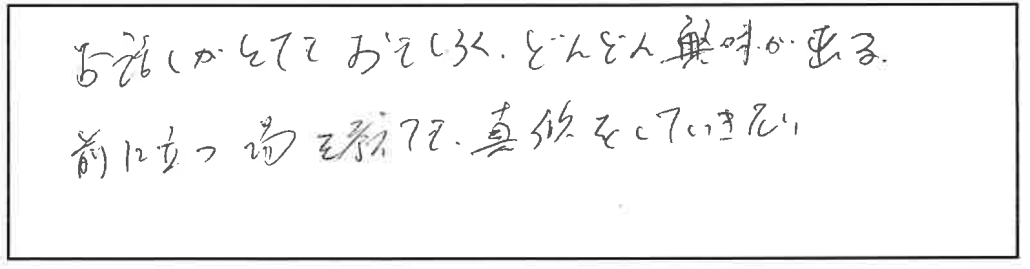 お話しがとてもおもしろく、どんどん興味が出る。
前に立つ場 ても、真似をしていきたい